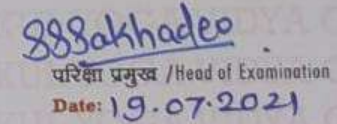 SSSakhadeo
परिक्षा प्रमुख /Head of Examination
Date: 19.07.2021